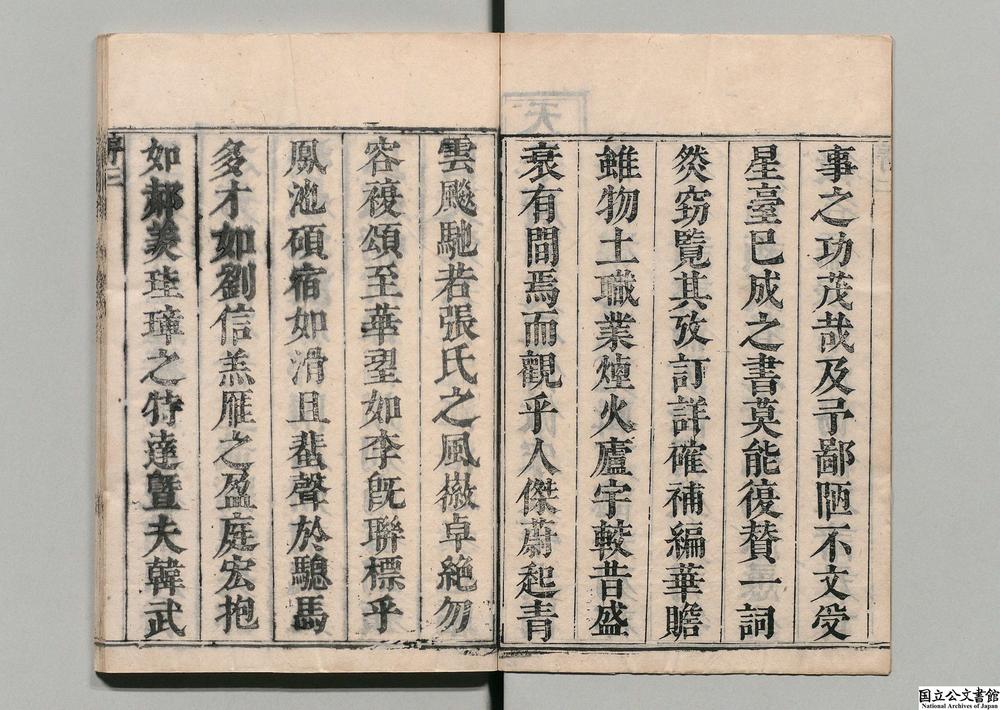 事之功茂哉及予鄙陋不文受
星臺已成之書莫能復贊一詞
然窃覽其攷訂詳確補編華贍
雖物土職業煙火廬宇較昔盛
衰有間焉而觀乎人傑蔚起青
雲颷馳若張氏之風徽卓絶勿
容複頌至華翌如李旣聯標乎
鳳池碩宿如滑且蜚聲於驄馬
多才如劉信羔雁之盈庭宏抱
如郝羨珪璋之特達曁夫韓武
序二
国立公文書館
National Archives of Japan